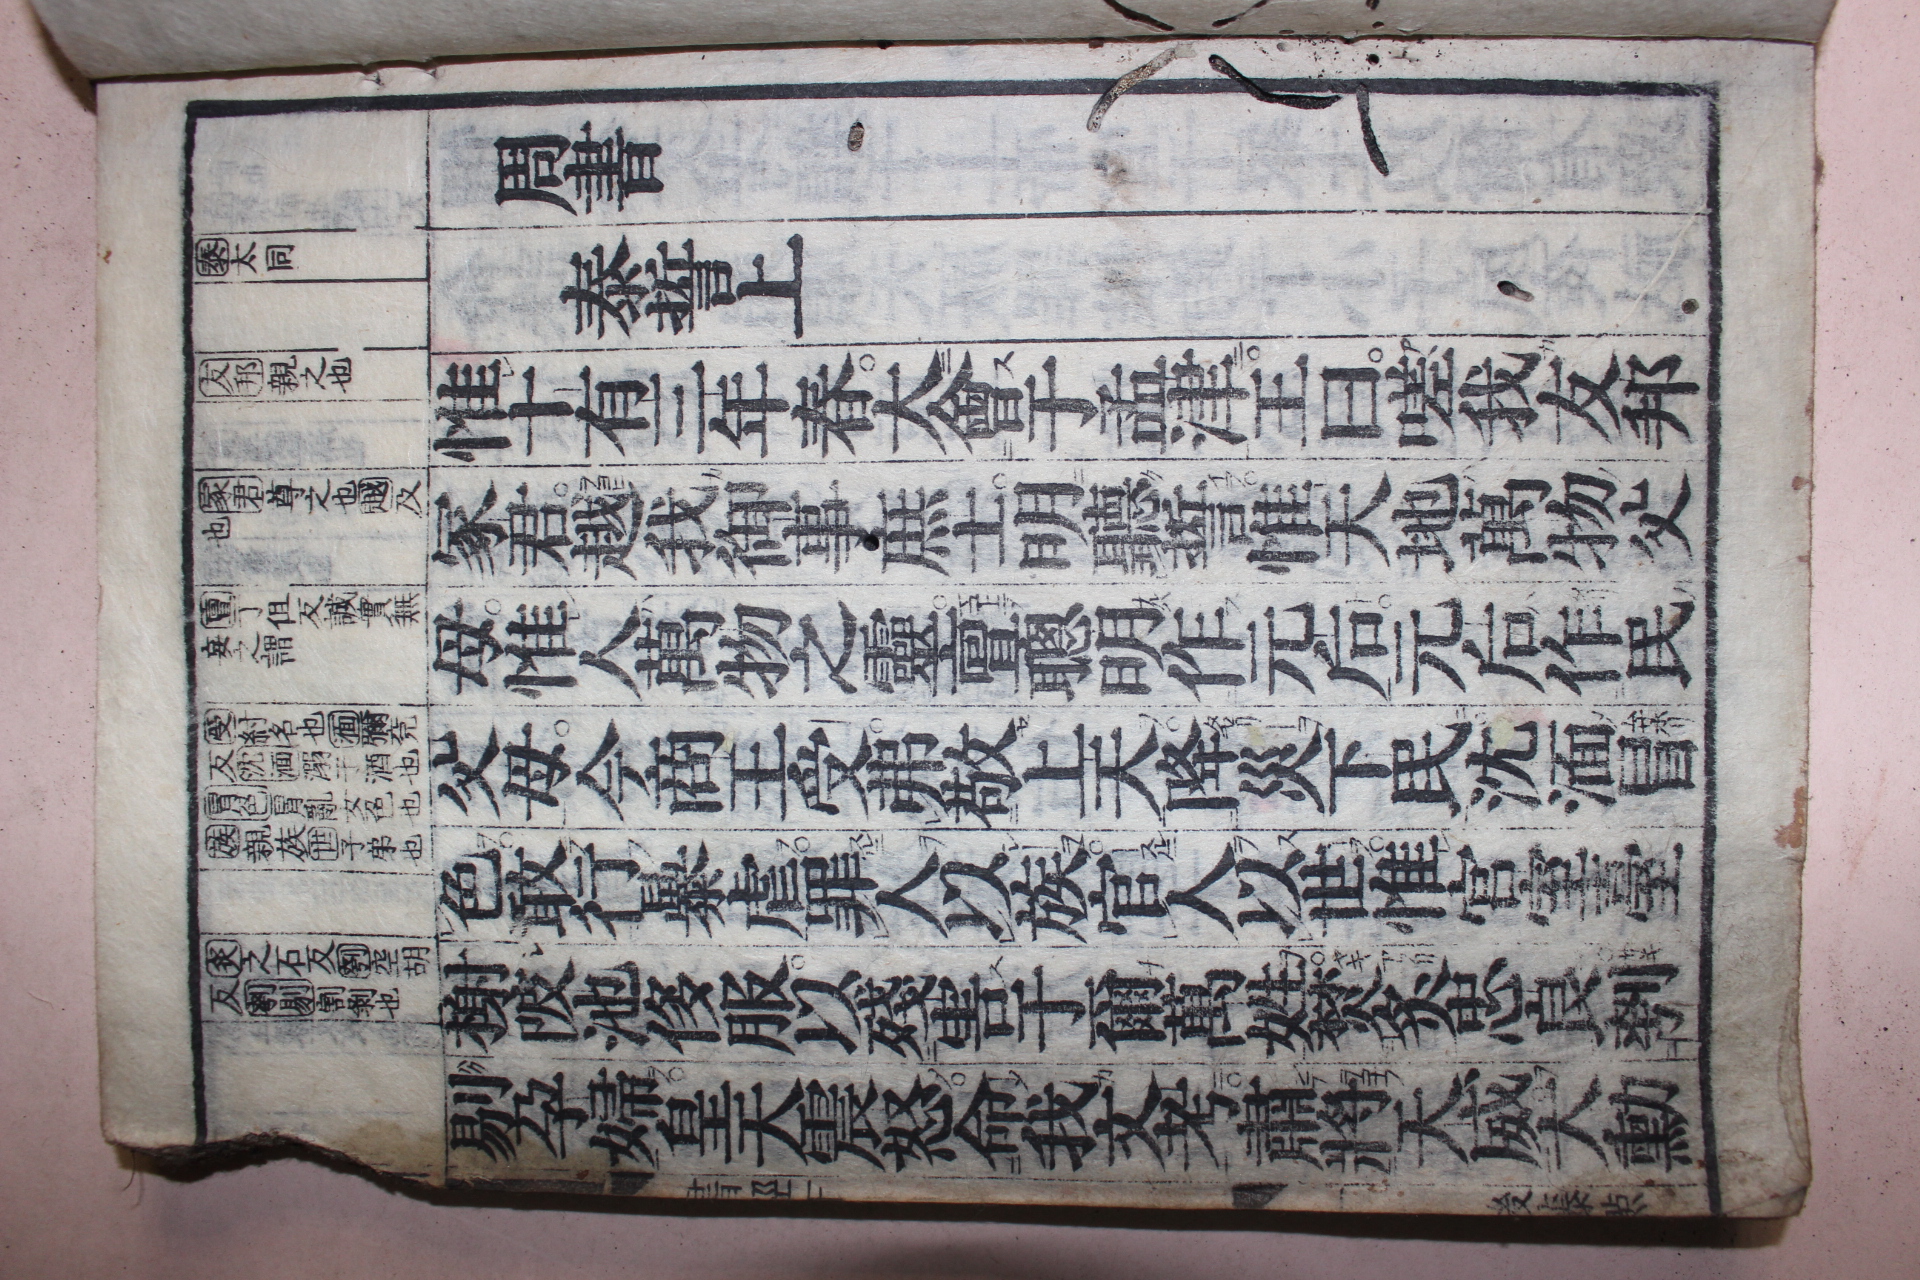 周書
泰太同
泰誓上
友邦親之也
惟十有三年春大會于孟津王曰嗟我友邦
冢君尊之也越及
也
冢君越我御事庶士明聽誓惟天地萬物父
亶丁但反誠實無
妄之謂
母惟人萬物之靈亶聰明作元后元后作民
受紂名也湎彌兗
反沈湎溺于酒也
冒色冒亂女色也
族親族世子弟也
父母今商王受弗敬上天降災下民沈湎冒
色敢行暴虐罪人以族官人以世惟宮室臺
炙之石反刳空胡
反刳剔割剝也
榭陂池侈服以殘害于爾萬姓焚炙忠良刳
剔孕婦皇天震怒命我文考肅將天威大勳